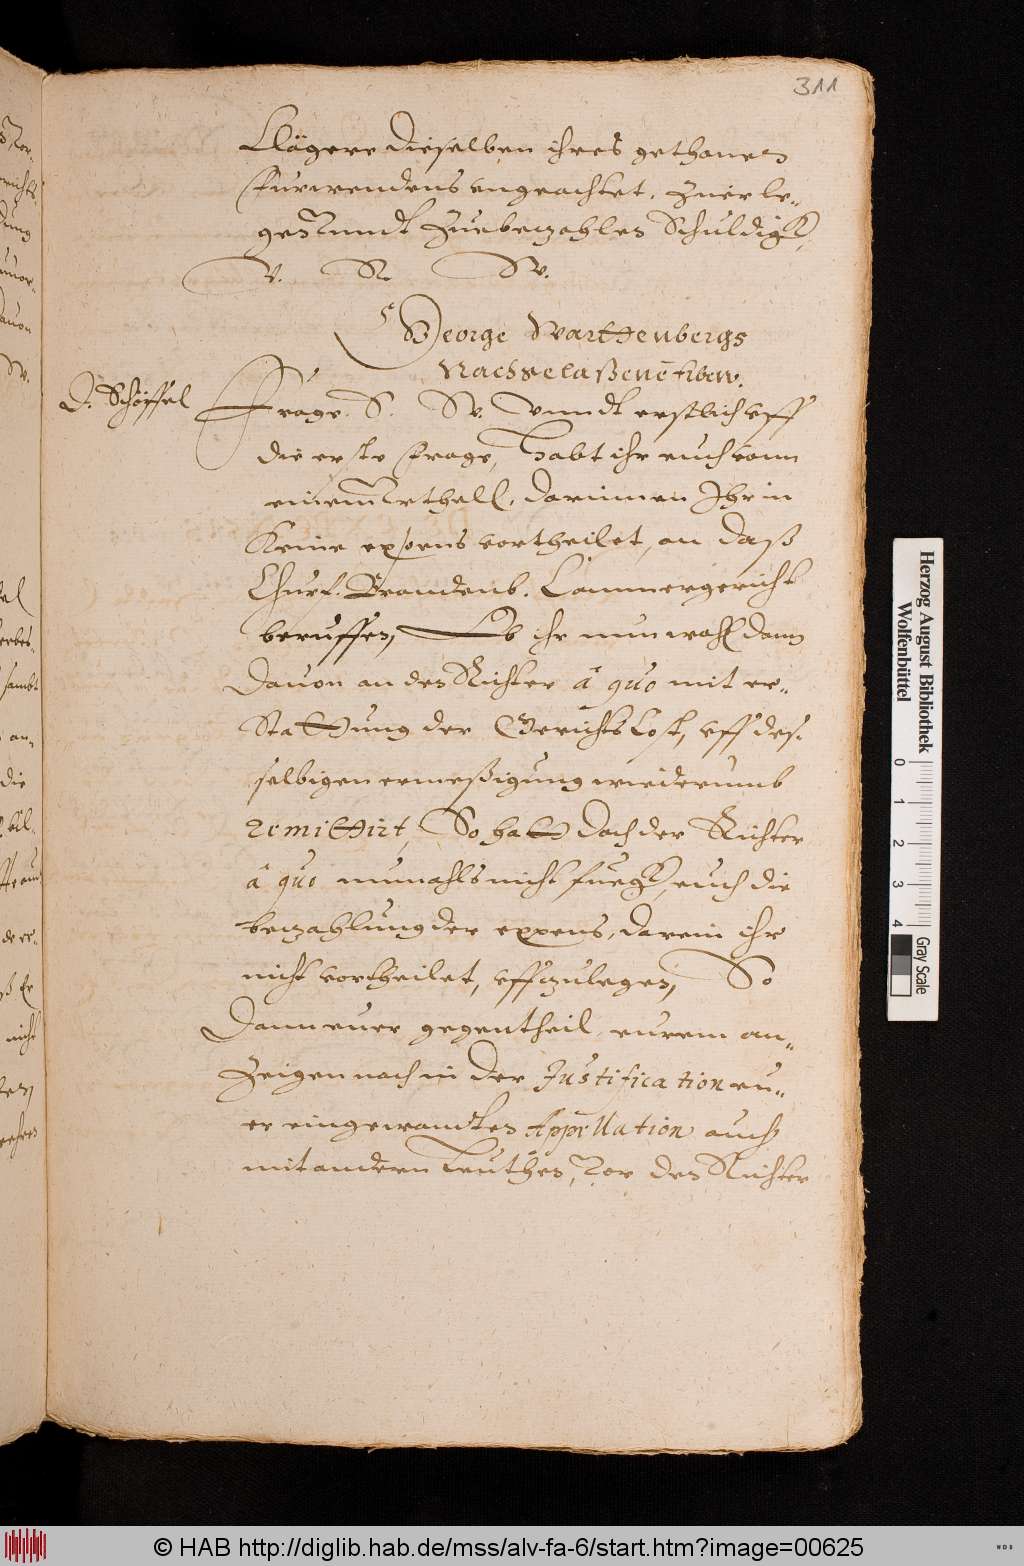 311
Klägere dieselben ihres gethanen
fürwendens vngeachtet, Zuerle-
gen vnndt Zuebezahlen Schuldigk,
V. R. W.
George Warttenbergs
Nachgelaßene frawen.
D. Schöffel
Frage. P. W. vnndt erstlich vff
die erste frage, Habt ihr euch vonn
einem Vrthell, darinnen Ihr in
Keine expens vortheilet, an daß
Churf. Brandenb. Cammergericht
beruffen, Ob ihr nun wohl dann
dauon an den Richter à quo mit er-
Stattung der Gerichts Cost, vff des-
selbigen ermeßigung wiederumb
remittirt, So hatt doch der Richter
à quo nunmahls nicht fuegk, euch die
bezahlung der expens, darein ihr
nicht vortheilet, vffzulegen, So
Dann euer gegentheil eurem an-
Zeigen nach in der Justification eu-
er eingewandten Appellation auch
mit andern Leuthen, Vor den Richter
Herzog August Bibliothek
Wolfenbüttel
0 1 2 3 4
Gray Scale
© HAB http://diglib.hab.de/mss/alv-fa-6/start.htm?image=00625